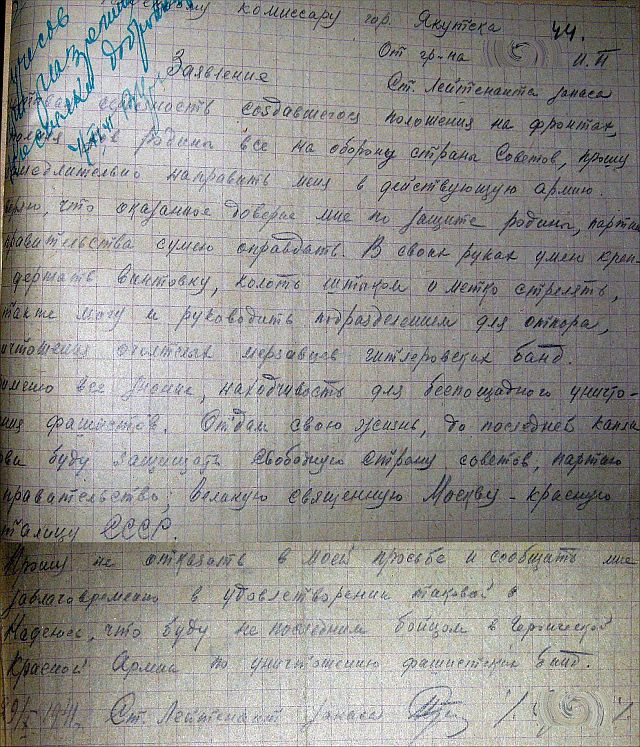 комиссару гор. Якутска 44.
От гр-на И. П
Заявление Ст. Лейтенанта запаса
создавшегося положения на фронтах,
родины все на оборону страны Советов, прошу
направить меня в действующую армию.
что оказанное доверие мне по защите родины, партии
сумею оправдать. В своих руках умею креп-
держать винтовку, колоть штыком и метко стрелять,
также могу и руководить подразделением для отпора,
мерзавцев гитлеровских банд.
все умение, находчивость для беспощадного уничто-
фашистов. Отдам свою жизнь, до последней капли
буду защищать свободную страну советов, партию
правительство; великую священную Москву - красную
СССР.
Прошу не отказать в моей просьбе и сообщить мне
заблаговременно в удовлетворении таковой
Надеюсь, что буду не последним бойцом в Героической
Красной Армии по уничтожению фашистских банд.
1941. Ст. Лейтенант запаса